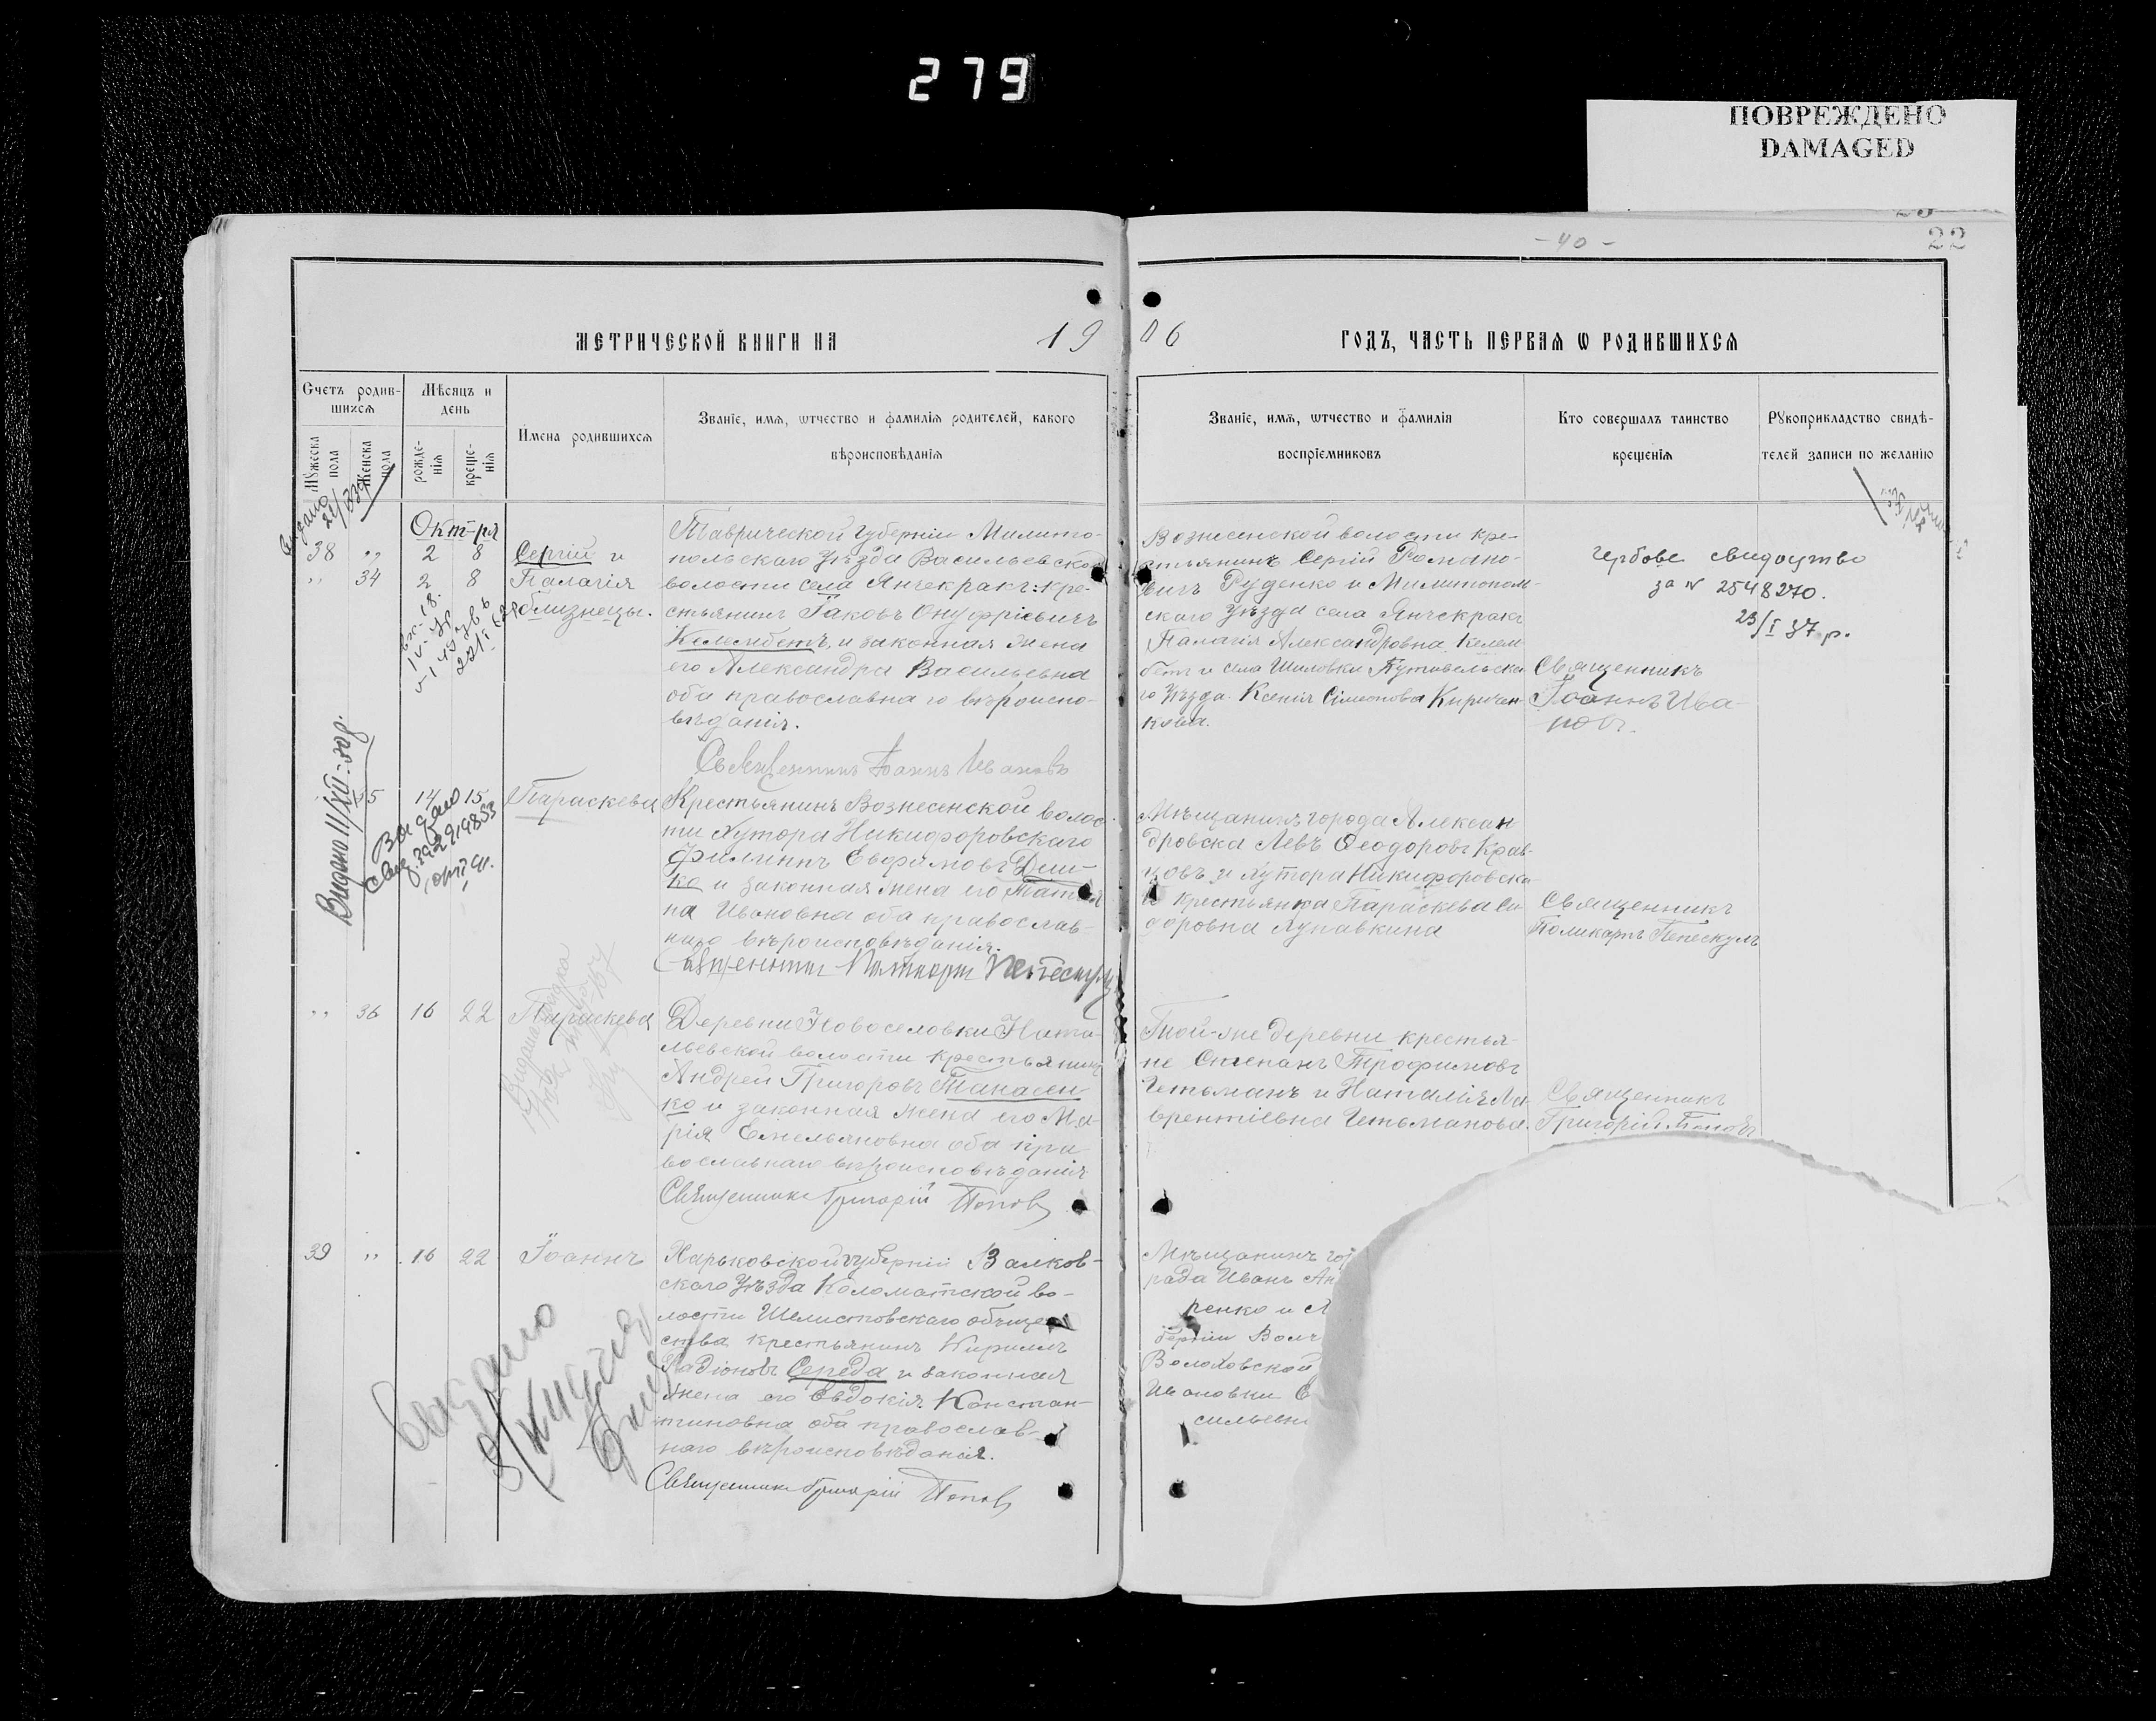 279
ПОВРЕЖДЕНО
DAMAGED
- 40 -
22
МЕТРИЧЕСКОЙ КНИГИ НА 19
06 ГОДЪ, ЧАСТЬ ПЕРВАЯ Ѡ РОДИВШИХСЯ
Счетъ родив-
шихся
Мѣсяцъ и
день
Мужеска
пола
Женска
пола
рожде-
нія
креще-
нія
Имена родившихся
Званіе, имя, ѡтчество и фамилія родителей, какого
вѣроисповѣданія
Званіе, имя, ѡтчество и фамилія
воспріємниковъ
Кто совершалъ таинство
крещенія
Рукоприкладство свидѣ-
телей записи по желанію
Окт-ря
38 " 2 8
" 34 2 8
Сергій и
Палагія
близнецы.
Таврической Губерніи Милито-
польскаго Уѣзда Васильевской
волости села Янчекракъ: кре-
стьянинъ Іаковъ Онуфріевичъ
Келембетъ, и законная жена
его Александра Васильевна
оба православнаго вѣроиспо-
вѣданія.
Священникъ Іоаннъ Ивановъ
Вознесенской волости кре-
стьянинъ Сергій Романо-
вичъ Руденко и Милитополь-
скаго Уѣзда села Янчекрака
Палагія Александровна Келем
бетъ и села Шиловки Путивельска
го Уѣзда Ксенія Симонова Киричен-
кова.
Священникъ
Іоаннъ Ива-
новъ.
гербове свидоцтво
за № 2548270.
23/I 37 р.
Видано 11/XII-30р.
35 14 15
Параскева
Крестьянинъ Вознесенской волос-
ти Хутора Никифоровскаго
Филиппъ Евфимовъ
ко и законная жена его Татія
на Ивановна оба православ-
наго вѣроисповѣданія.
Мѣщанинъ города Алексан
дровска Левъ Ѳеодоровъ Крав-
цовъ и Хутора Никифоровска-
го крестьянка Параскева Си
доровна Лунавкина
Священникъ
Поликарпъ Пепескулъ
" 36 16 22
Параскева
Деревни Новоселовки Ната-
льевской волости крестьянинъ
Андрей Григоровъ Танасен-
ко и законная жена его Ма-
рія Емельяновна оба пра
вославнаго вѣроисповѣданія
Священникъ Григорій Поповъ
Тюй-же деревни крестья-
не Степанъ Трофимовъ
Гетьманъ и Наталія Ла
врентіевна Гетьманова.
Священникъ
Григорій Поповъ
39 " 16 22
Іоаннъ
Харьковской губерніи Валков-
скаго Уѣзда Коломатской во-
лости Шелистовскаго обще
ства крестьянинъ Кириллъ
Радіоновъ Середа и законная
жена его Евдокія Констан-
тиновна оба православ-
наго вѣроисповѣданія.
Священникъ Григорій Поповъ
Мѣщанинъ го
рада Иванъ Ан
ренко и
берніи Волч
Волоховской
Ивановки Е
сильевн